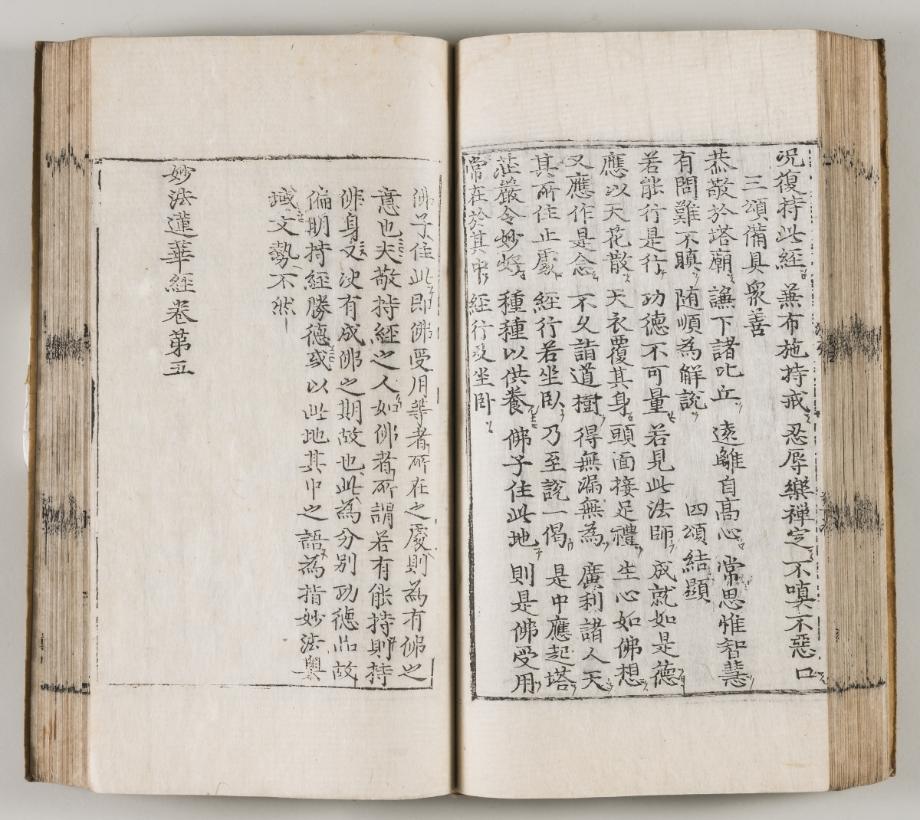 况復持此經 兼布施持戒 忍辱樂禪㝎 不嗔不惡口
三頌備具衆善
恭敬於塔廟 謙下諸比丘 遠離自高心 常思惟智慧
有問難不瞋 随順為解説 四頌結顯
若能行是行 功德不可量 若見此法師 成就如是德
應以天花散 天衣覆其身 頭面接足禮 生心如佛想
又應作是念 不久詣道樹 得無漏無為 廣利諸人天
其所住止處 經行若坐臥 乃至說一偈 是中應起塔
莊嚴令妙好 種種以供養 佛子住此地 則是佛受用
常在於其中 經行及坐卧
佛子住此即佛受用等者所在之處則為有佛之
意也夫敬持經之人如佛者所謂若有能持則持
佛身又决有成佛之期故也此為分别功德品故
偏明持經勝德或以此地其中之語為指妙法奥
域文勢不然
妙法蓮華經卷第五